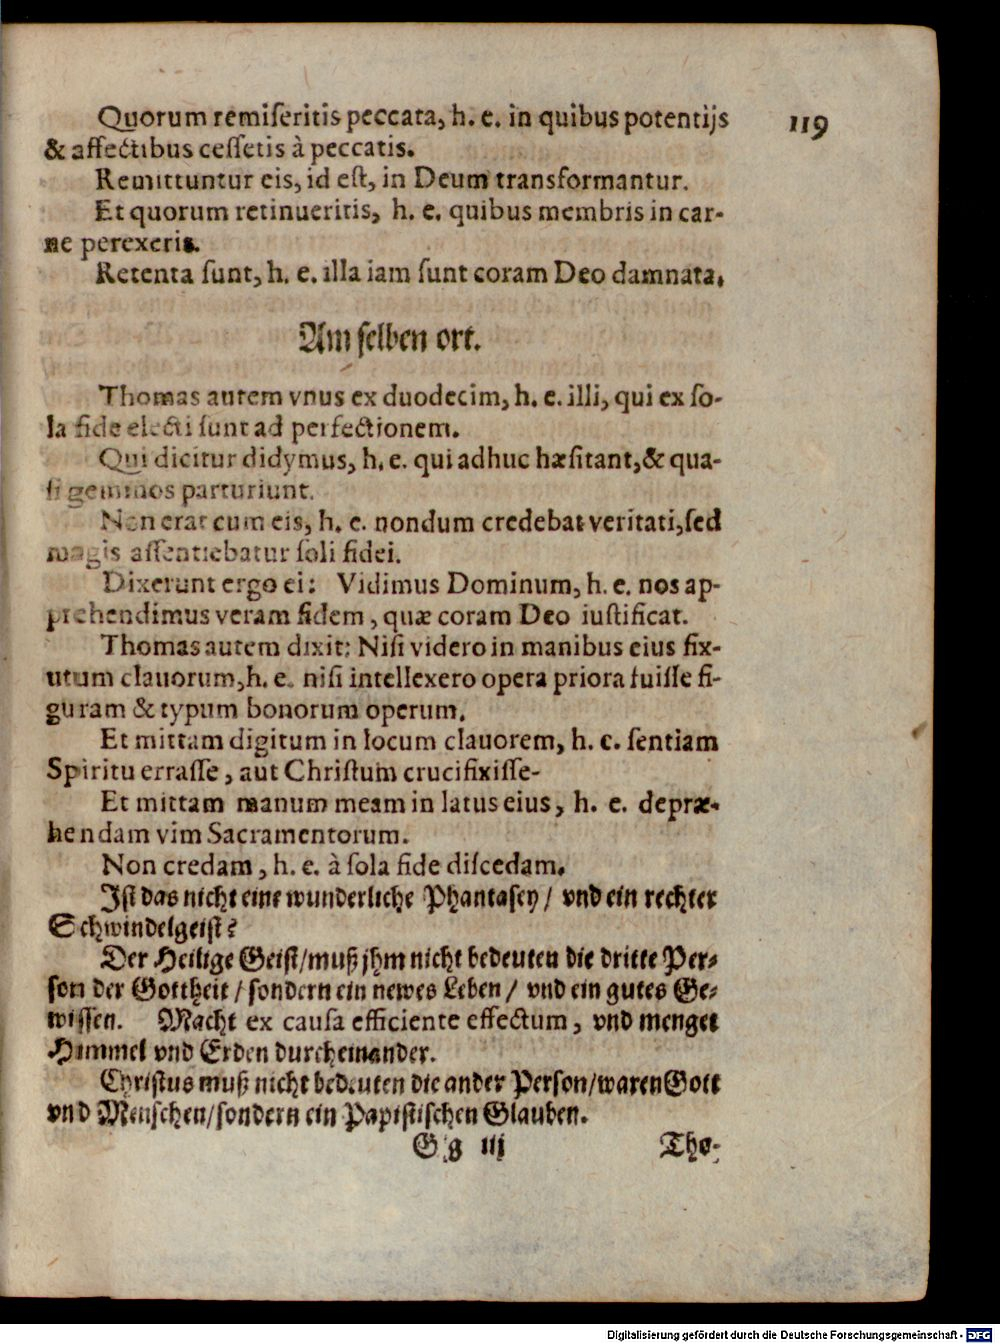 119
Quorum remiſeritis peccata, h. e. in quibus potentijs
& affectibus ceſſetis à peccatis.
Remittuntur eis, id eſt, in Deum transformantur.
Et quorum retinueritis, h. e. quibus membris in car-
ne perexeris.
Retenta ſunt, h. e. illa iam ſunt coram Deo damnata.
Am ſelben ort.
Thomas autem vnus ex duodecim, h. e. illi, qui ex ſo-
la fide electi ſunt ad perfectionem.
Qui dicitur didymus, h. e. qui adhuc hæſitant,& qua-
ſi gemmos parturiunt.
Non erat cum eis, h. e. nondum credebat veritati,ſed
magis aſſentiebatur ſoli fidei.
Dixerunt ergo ei: Vidimus Dominum, h. e. nos ap-
prehendimus veram fidem, quæ coram Deo iuſtificat.
Thomas autem dixit: Niſi videro in manibus eius fix-
uram clauorum,h. e. niſi intellexero opera priora fuiſſe fi-
guram & typum bonorum operum.
Et mittam digitum in locum clauorem, h. e. ſentiam
Spiritu erraſſe, aut Chriſtum crucifixiſſe-
Et mittam manum meam in latus eius, h. e. depræ-
hendam vim Sacramentorum.
Non credam, h. e. à ſola fide diſcedam.
Iſt das nicht eine wunderliche Phantaſey/ vnd ein rechter
Schwindelgeiſt?
Der Heilige Geiſt/muß jhm nicht bedeuten die dritte Per-
ſon der Gottheit/ ſondern ein newes Leben/ vnd ein gutes Ge-
wiſſen. Macht ex cauſa efficiente effectum, vnd menget
Himmel vnd Erden durcheinander.
Chriſtus muß nicht bedeuten die ander Perſon/waren Gott
vnd Menſchen/ſondern ein Papiſtiſchen Glauben.
Gg iij Tho-
Digitalisierung gefördert durch die Deutsche Forschungsgemeinschaft - DFG